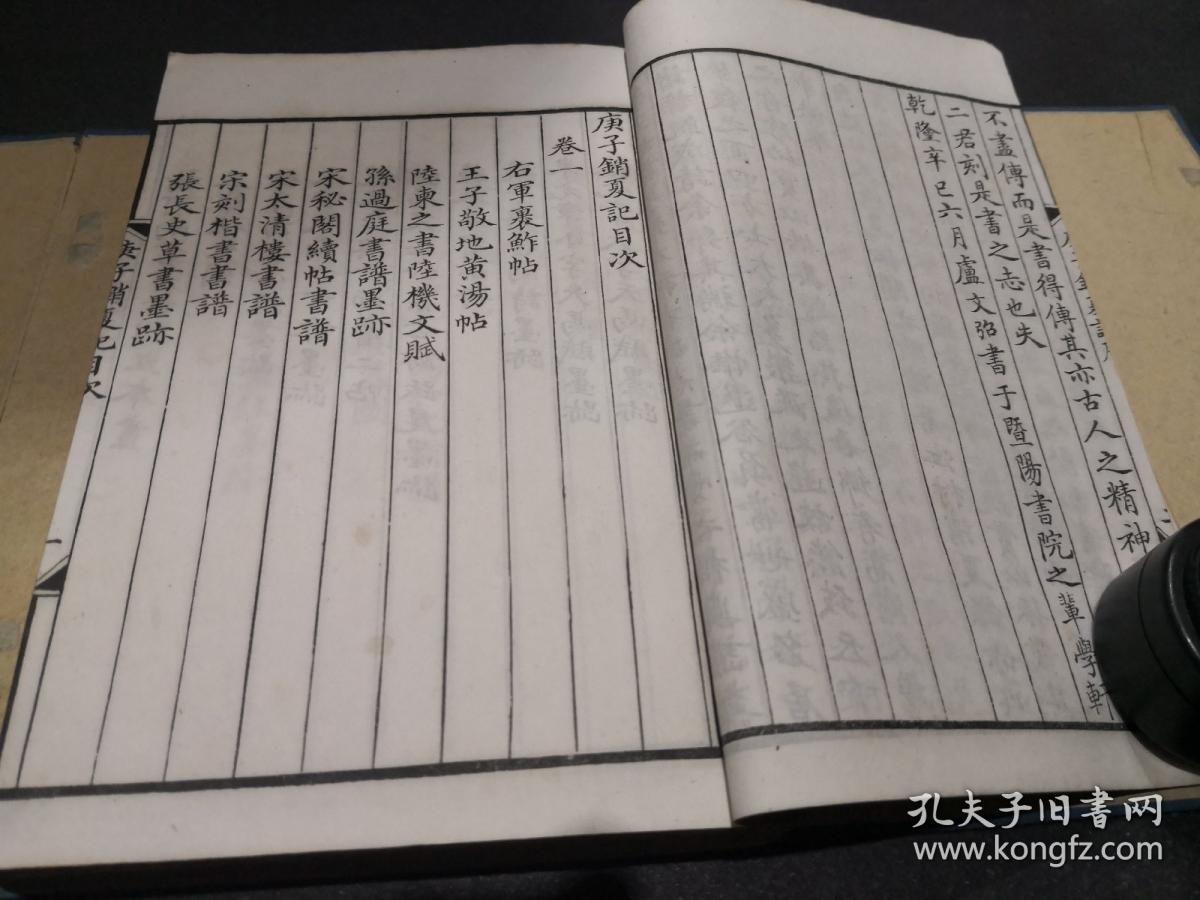 不盡傳而是書得傳其亦古人之精神
二君刻是書之志也夫
乾隆辛巳六月盧文弨書于暨陽書院之輩學軒
庚子銷夏記目次
卷一
右軍裹鮓帖
王子敬地黃湯帖
陸柬之書陸機文賦
孫過庭書譜墨跡
宋秘閣續帖書譜
宋太清樓書譜
宗刻楷書書譜
張長史草書墨跡
庚子銷夏記目次
一
孔夫子旧书网
www.kongfz.com